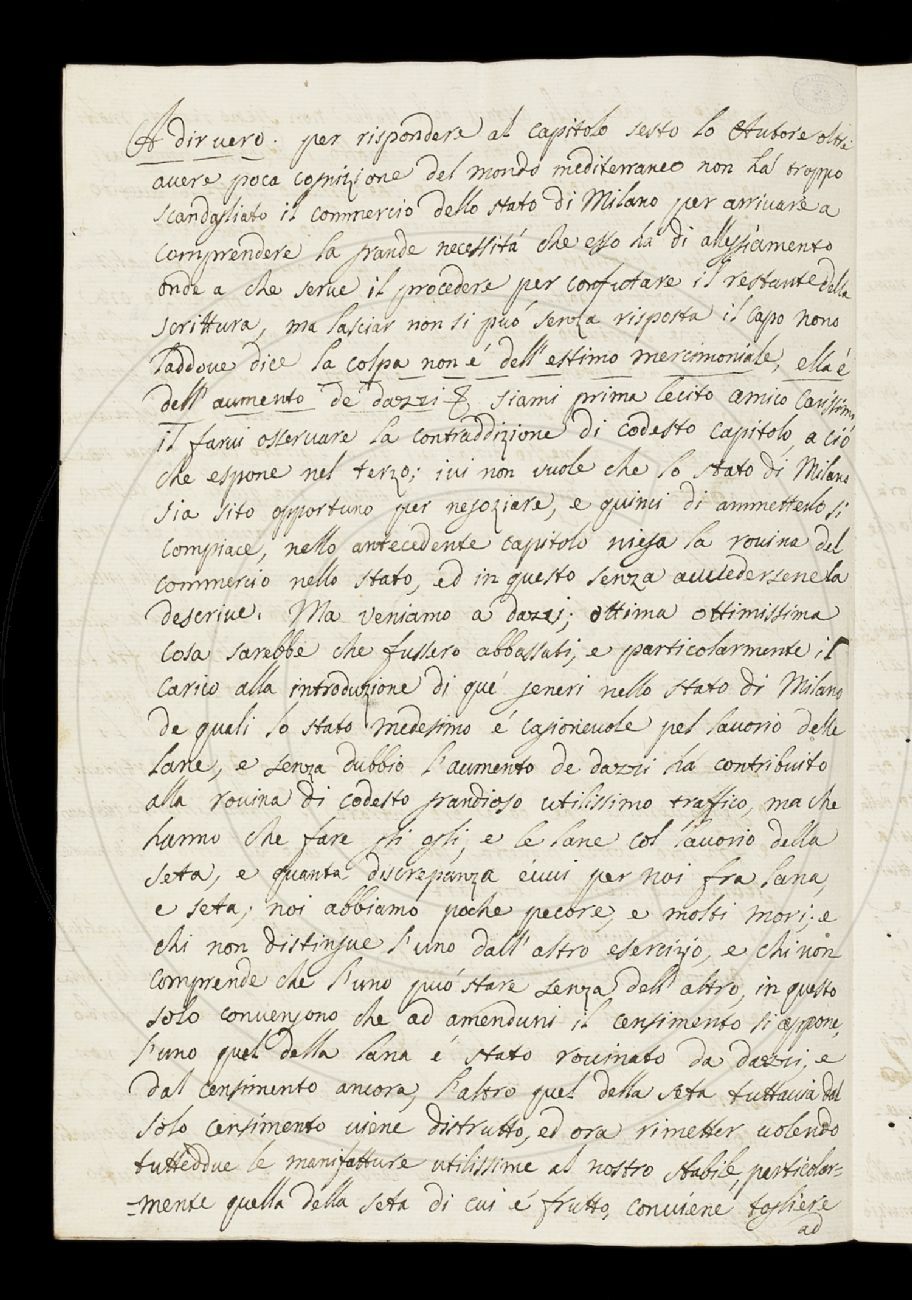 A dir vero. per rispondere al capitolo sesto lo Autore oltre
avere poca cognizione del mondo mediterraneo non há troppo
scandagliato il commercio dello stato di Milano per arrivare a
comprendere la grande necessitá che esso há di alleggiamento
onde a che serve il procedere per confutare il restante della
scrittura, ma lasciar non si puó senza risposta il capo nono
laddove dice la colpa non é dell'estimo mercimoniale, ella é
dell'aumento de dazzi &. siami prima lecito amico carissimo
il farvi osservare la contraddizione di codesto capitolo, a ció
che espone nel terzo; ivi non vuole che lo stato di Milano
sia sito opportuno per negoziare, e quinci di ammetterlo si
compiace, nello antecedente capitolo niega la rovina del
commercio nello stato, ed in questo senza avvedersene la
descrive. Ma veniamo a dazzi; ottima ottimissima
cosa sarebbe che fussero abbassati, e particolarmente il
carico alla introduzione di que' generi nello stato di Milano
de quali lo stato medesimo é cagionevole pel lavorio delle
lane, e senza dubbio l'aumento de dazzii há contribuito
alla rovina di codesto grandioso utilissimo traffico, ma che
hanno che fare gli ogli, e le lane col lavorio della
seta, e quanta discrepanza évvi per noi fra lana,
e seta; noi abbiamo poche pecore, e molti mori; e
chi non distingue l'uno dall'altro esercizio, e chi non
comprende che l'uno puó stare senza dell'altro, in questo
solo convengono che ad amenduni il censimento si oppone,
l'uno quel della lana é stato rovinato da dazzii, e
dal censimento ancora, l'altro quel della seta tuttavia dal
solo censimento viene distrutto, ed ora rimetter volendo
tutteddue le manifatture utilissime al nostro stabile, particolar=
=mente quella della seta di cui é frutto, conviene togliere
ad